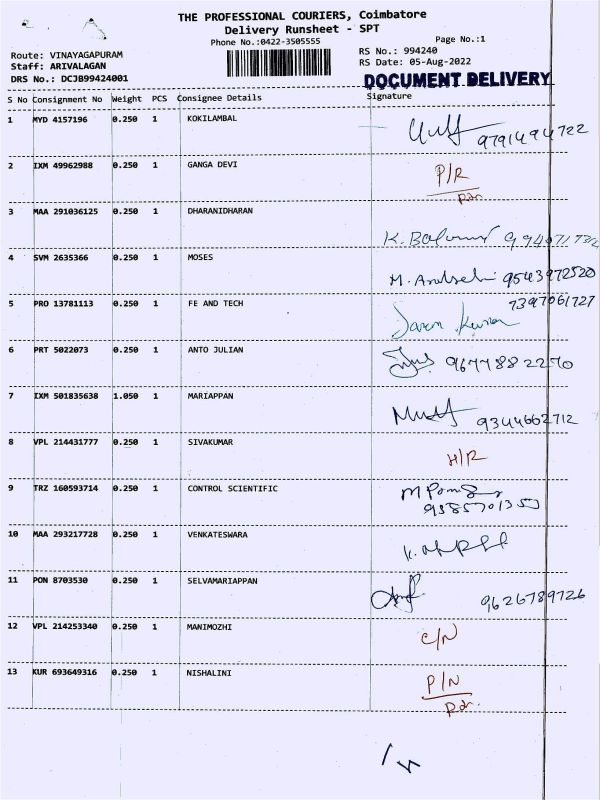 THE PROFESSIONAL COURIERS, Coimbatore
Delivery Runsheet - SPT
Phone No.:0422-3505555
Page No.:1
Route: VINAYAGAPURAM
RS No.: 994240
Staff: ARIVALAGAN
RS Date: 05-Aug-2022
DRS No.: DCJB99424001
DOCUMENT DELIVERY
S No Consignment No Weight PCS Consignee Details Signature
1 MYD 4157196 0.250 1 KOKILAMBAL
9791494722
2 IXM 49962988 0.250 1 GANGA DEVI P/R
3 MAA 291036125 0.250 1 DHARANIDHARAN
4 SVM 2635366 0.250 1 MOSES
9543972520
5 PRO 13781113 0.250 1 FE AND TECH 7397061727
6 PRT 5022073 0.250 1 ANTO JULIAN
9677882270
7 IXM 501835638 1.050 1 MARIAPPAN
9344662712
8 VPL 214431777 0.250 1 SIVAKUMAR
H/R
9 TRZ 160593714 0.250 1 CONTROL SCIENTIFIC
10 MAA 293217728 0.250 1 VENKATESWARA
11 PON 8703530 0.250 1 SELVAMARIAPPAN
9626789726
12 VPL 214253340 0.250 1 MANIMOZHI C/N
13 KUR 693649316 0.250 1 NISHALINI P/N